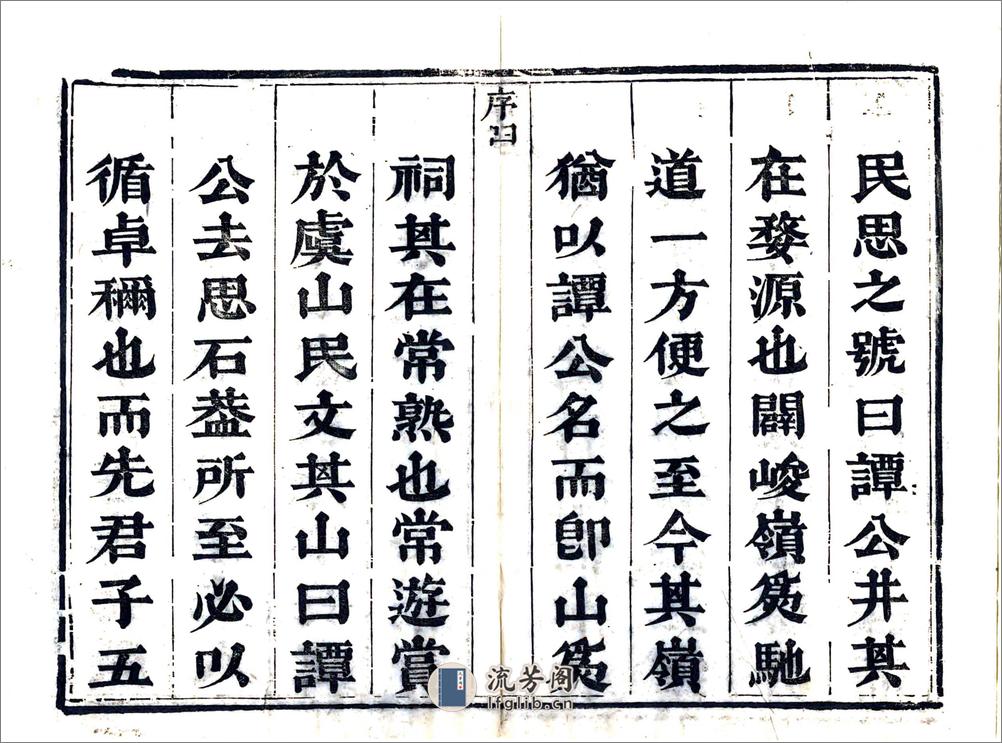 民思之號曰譚公井其其
在婺源也闢峻嶺爲馳
道一方便之至今其嶺
猶以譚公名而卽山爲
序曰
祠其在常熟也常遊賞
於虞山民文其山曰譚
公去思石葢所至必以
循卓稱也而先君子五
流芳阁
lfglib.cn